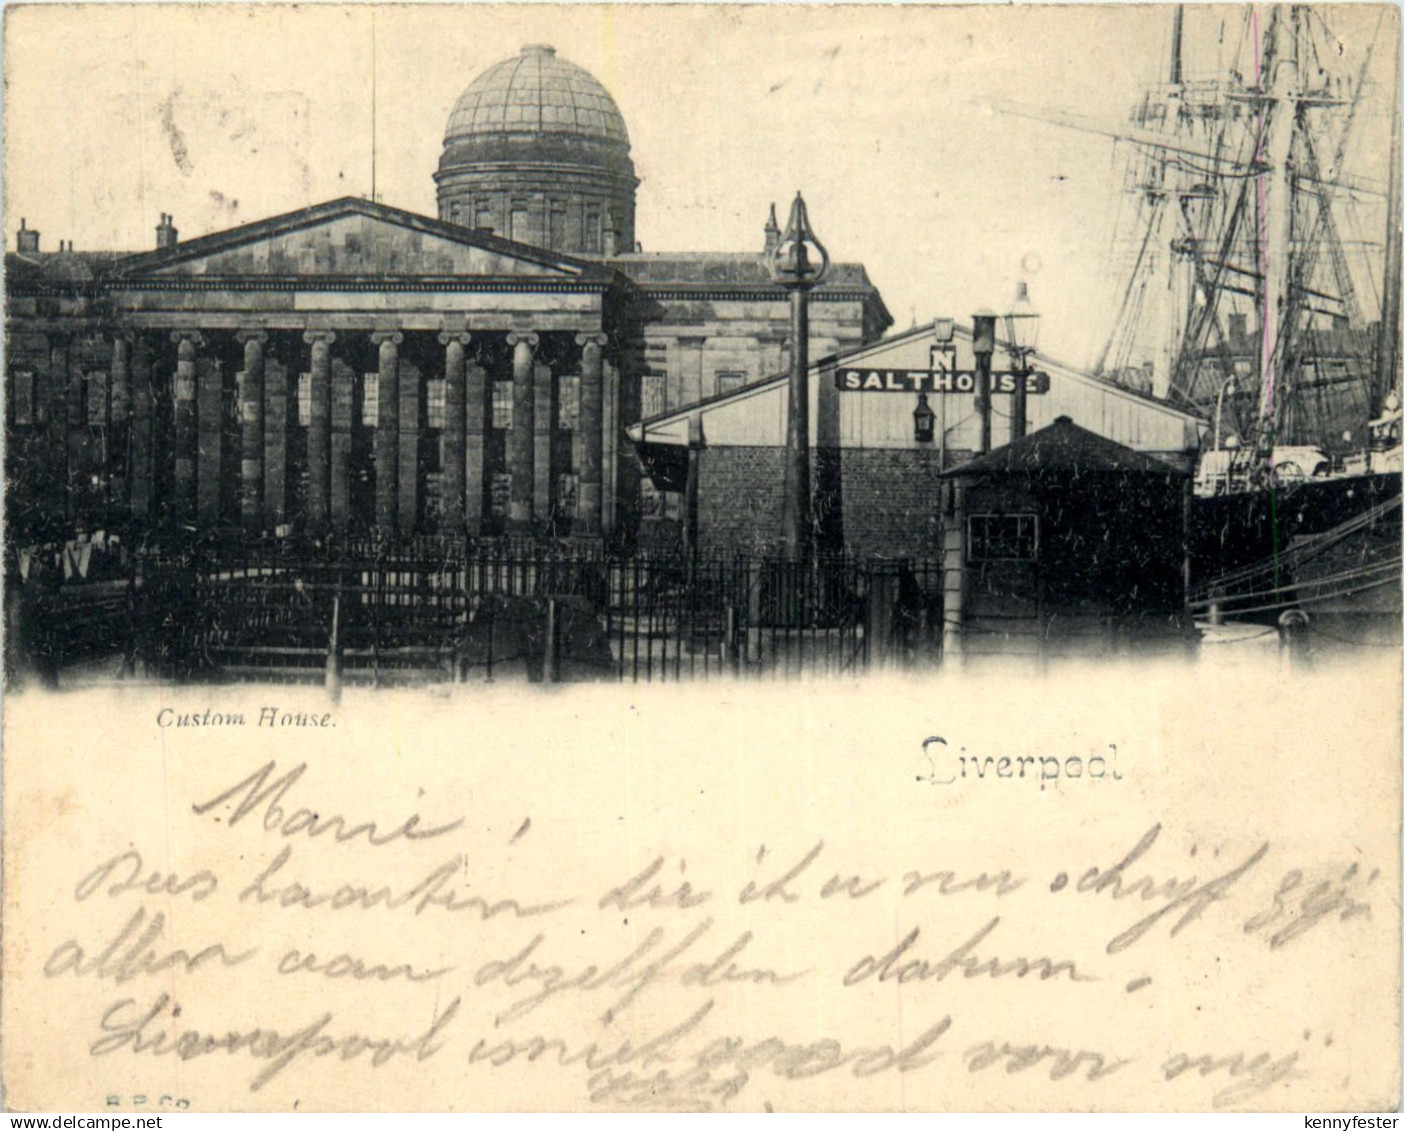 N
SALTHOUSE
Custom House.
Liverpool
Marie,
Dees kaarten die ik u nu schrijf zijn
allen van dezelfden datum.
Liverpool is niet goed voor mij
kennyfester